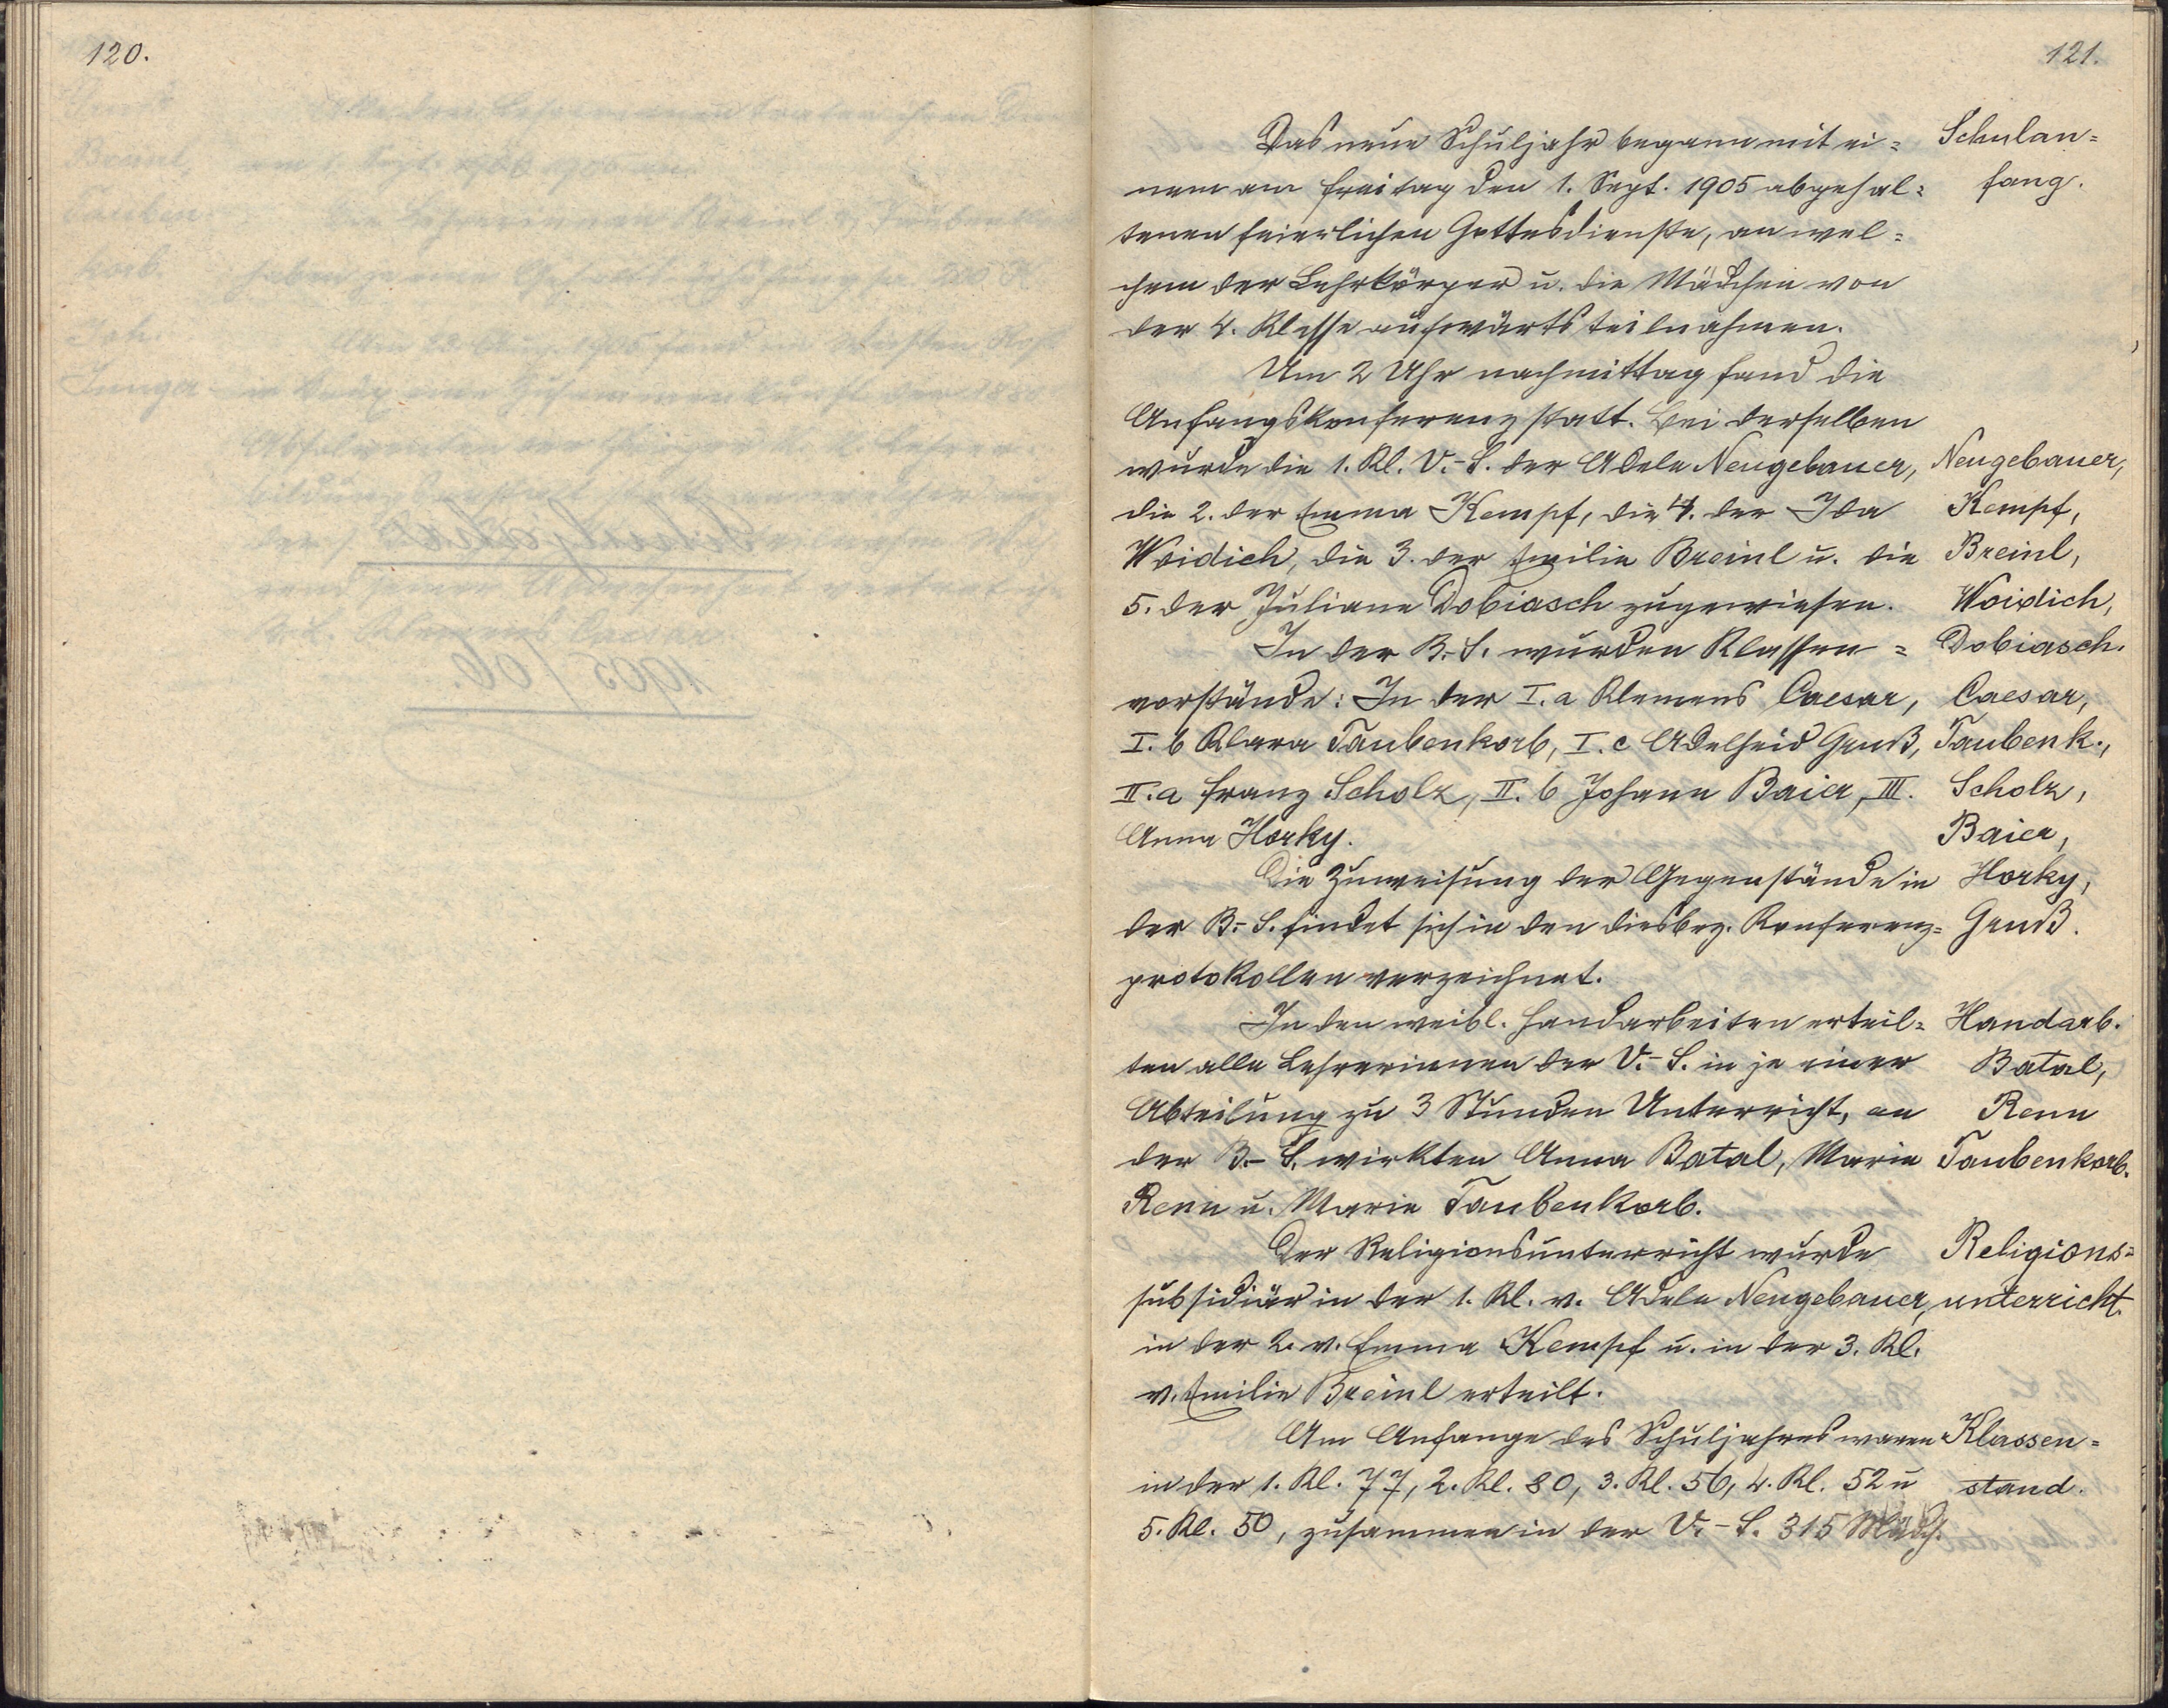 120.
121.
Das neue Schuljahr begann mit ei=
nem am Freitag den 1. Sept. 1905 abgehal=
tenen feierlichen Gottesdienste, an wel=
chem der Lehrkörper u. die Mädchen von
der 4. Klasse aufwärts teilnahmen.
Um 2 Uhr nachmittag fand die
Anfangskonferenz statt. Bei derselben
wurde die 1. Kl. V.-S. der Adele Neugebauer,
die 2. der Emma Kempf, die 4. der Ida
Woidich, die 3. der Emilie Breinl u. die
5. der Juliane Dobiasch zugewiesen.
In der B.-S. wurden Klassen=
vorstände: In der I. a Klemens Caesar,
I. b Klara Taubenkorb, I. c Adelheid Gruß,
II. a Franz Scholz, II. b Johann Baier, III.
Anna Horky.
Die Zuweisung der Gegenstände in
der B.-S. findet sich in den diesbez. Konferenz=
protokollen verzeichnet.
In den weibl. Handarbeiten erteil=
ten alle Lehrerinnen der V.-S. in je einer
Abteilung zu 3 Stunden Unterricht, an
der B.-S. wirkten Anna Batal, Marie
Renn u. Marie Taubenkorb.
Der Religionsunterricht wurde
subsidiär in der 1. Kl. v. Adele Neugebauer,
in der 2. v. Emma Kempf u. in der 3. Kl.
v. Emilie Breinl erteilt.
Am Anfange des Schuljahres waren
in der 1. Kl. 77, 2. Kl. 80, 3. Kl. 56, 4. Kl. 52 u
5. Kl. 50, zusammen in der V.-S. 315 Mädch.
Schulan=
fang.
Neugebauer,
Kempf,
Breinl,
Woidich,
Dobiasch.
Caesar,
Taubenk.,
Scholz,
Baier,
Horky,
Gruß.
Handarb.
Batal,
Renn
Taubenkorb.
Religions=
unterricht.
Klassen=
stand.